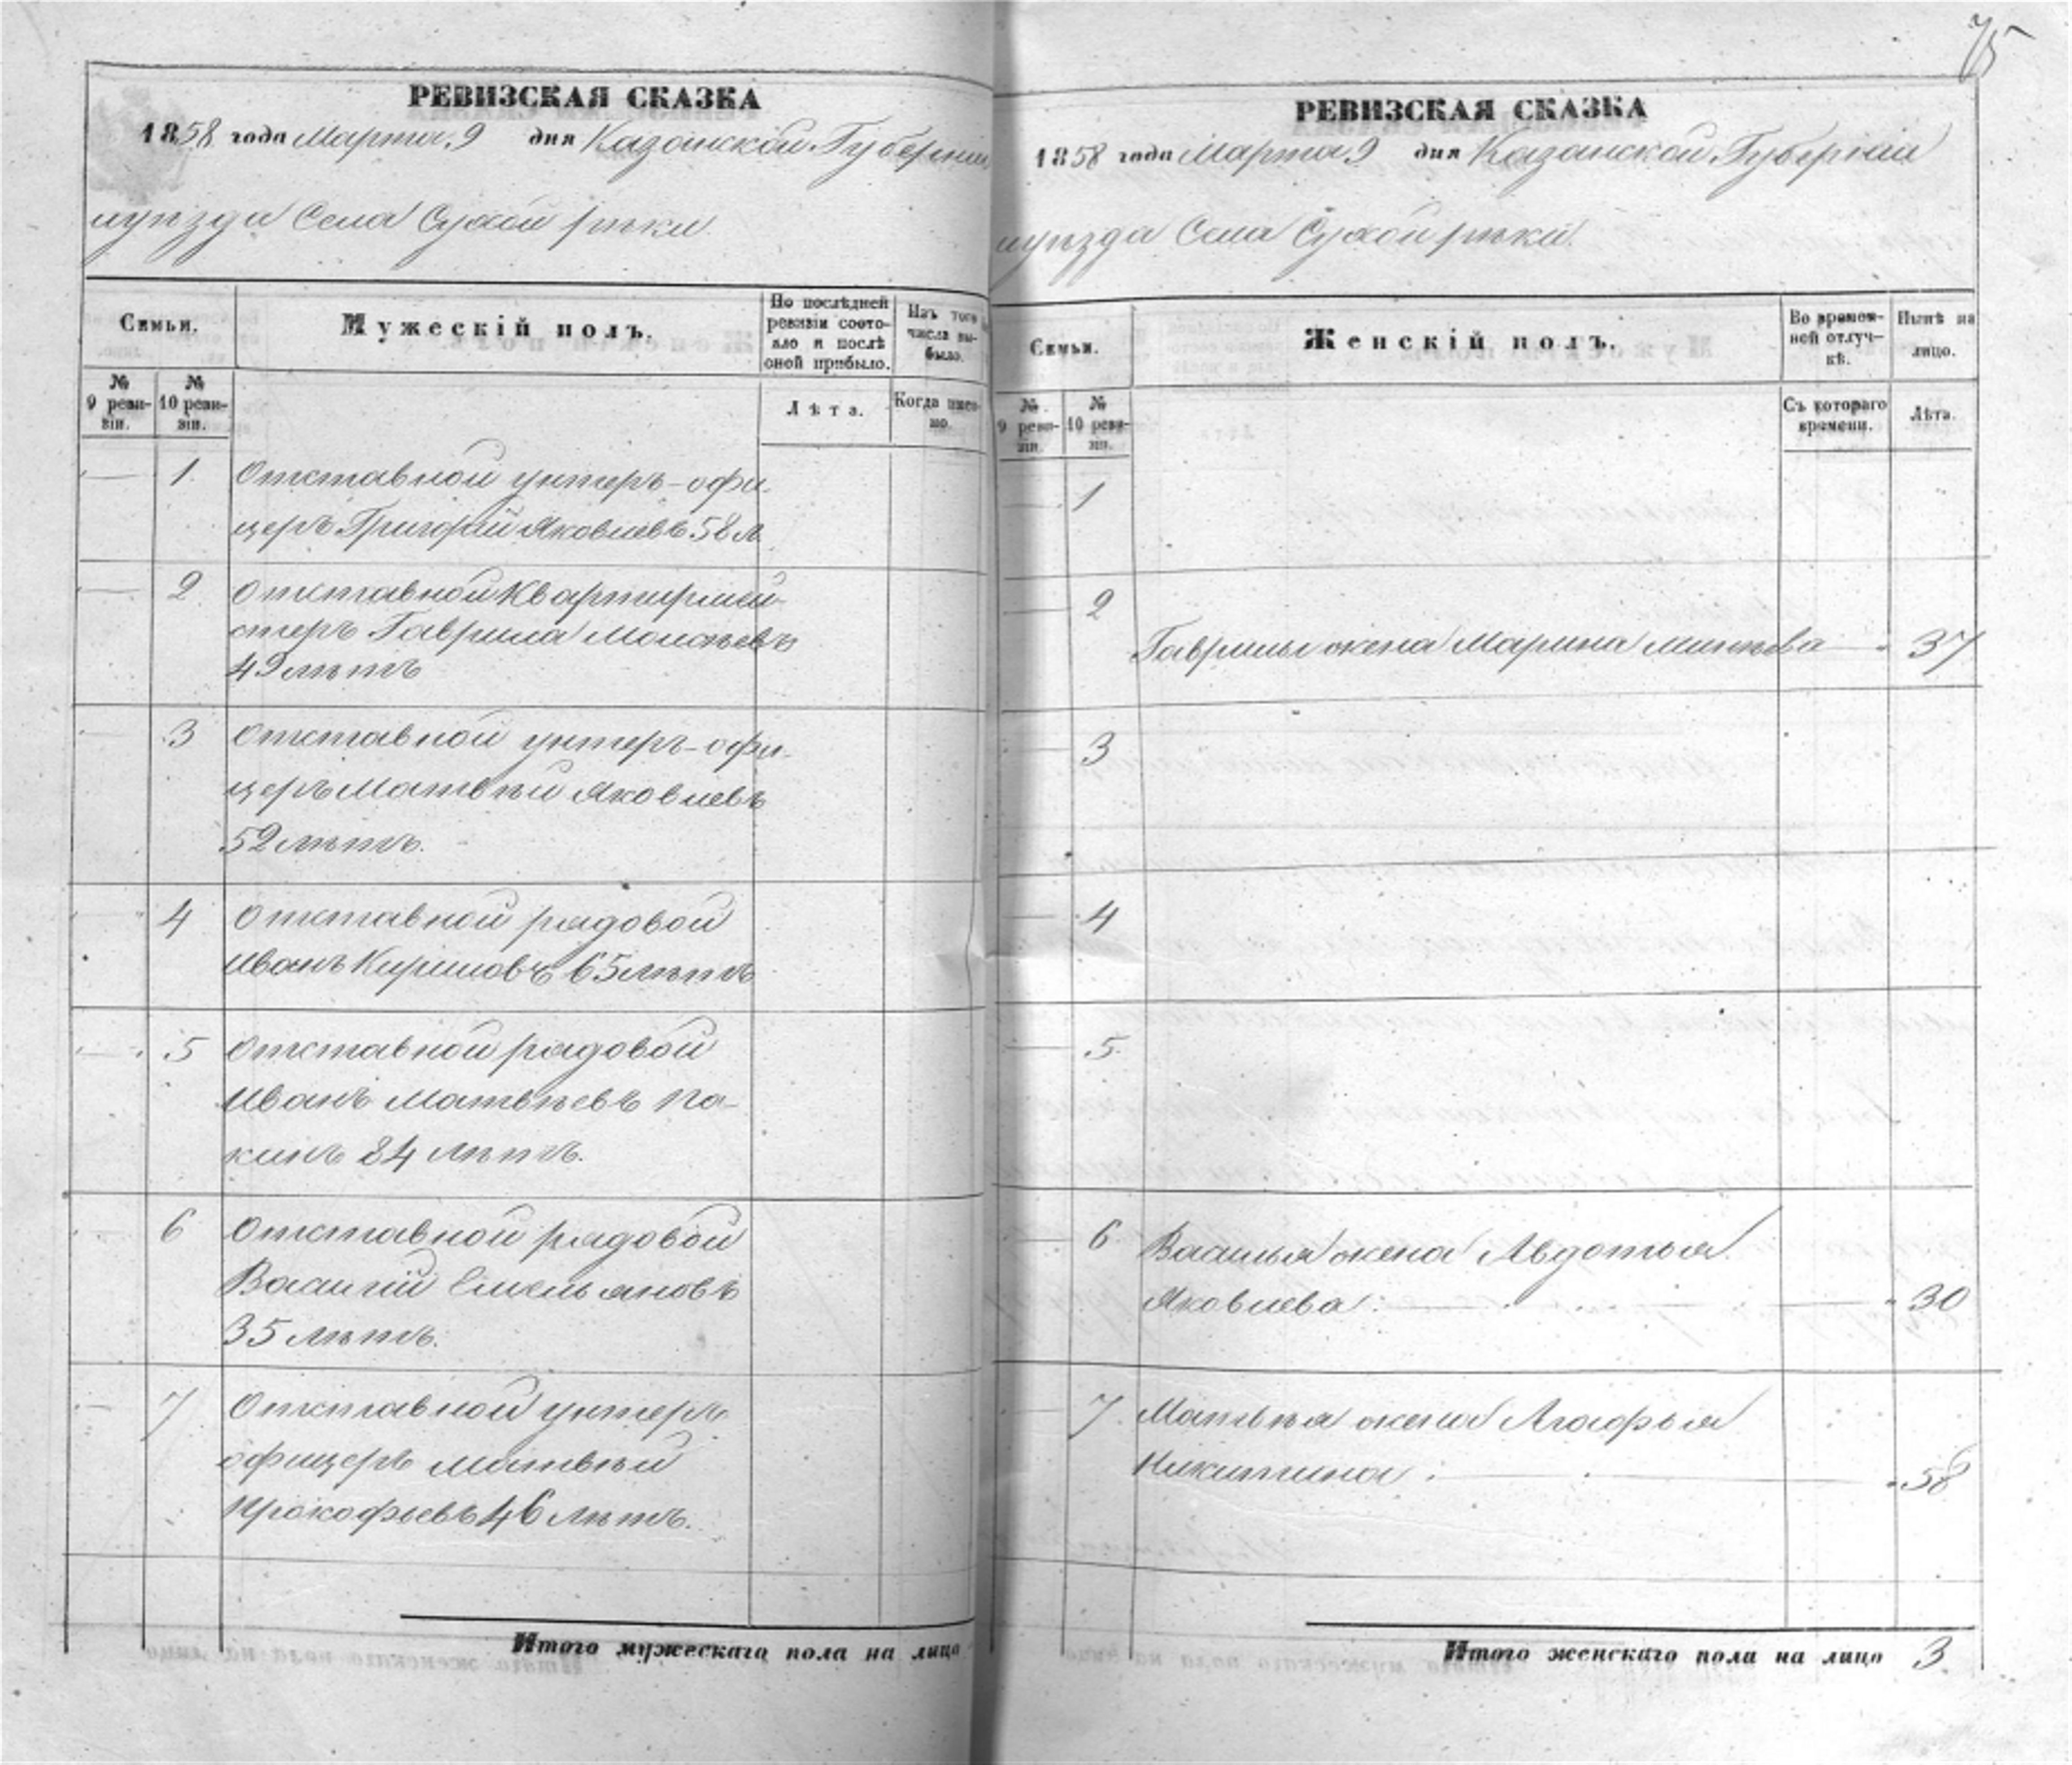 75
РЕВИЗСКАЯ СКАЗКА
1858 года Марта 9 дня Казанской Губернии
уѣзда Села Сухой рѣки
Семьи.
Мужескій полъ.
По послѣдней ревизіи состояло и послѣ оной прибыло.
Изъ того числа выбыло.
№ 9 ревизіи.
№ 10 ревизіи.
Лѣта.
Когда именно.
1. Отставной унтеръ-офи-
церъ Григорій Яковлевъ 58 л.
2. Отставной Квартирмей-
стеръ Гаврила Моисѣевъ
42 лѣтъ
3 Отставной унтеръ-офи-
церъ Матвѣй Яковлевъ
52 лѣтъ.
4 Отставной рядовой
Иванъ Кириловъ 65 лѣтъ
5 Отставной рядовой
Иванъ Матвѣевъ Па-
кинъ 84 лѣтъ.
6 Отставной рядовой
Василій Емельяновъ
35 лѣтъ.
7 Отставной унтеръ
офицеръ Матвѣй
Прокофьевъ 46 лѣтъ.
Итого мужескаго пола на лицо
РЕВИЗСКАЯ СКАЗКА
1858 года Марта 9 дня Казанской Губерніи
уѣзда Села Сухой рѣки.
Семьи.
Женскій полъ.
Во временной отлучкѣ.
Нынѣ на лицо.
№ 9 ревизіи.
№ 10 ревизіи.
Съ котораго времени.
Лѣта.
1
2
Гаврилы жена Марина 37
3
4
5.
6 Василья жена Авдотья
Яковлева: 30
7. Матвѣя жена Агафья
Никитина: 58
Итого женскаго пола на лицо 3